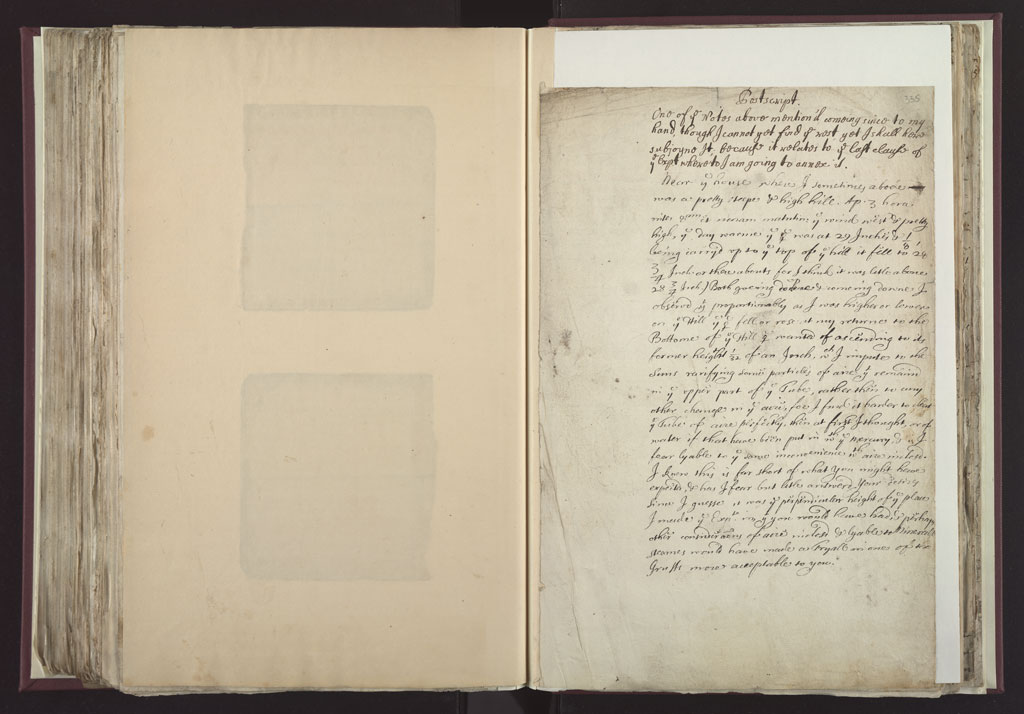 Postscript.
One of yͤ Notes above mention'd comeing since to my
hand, though I cannot yet find yͤ rest yet I shall here
subjoyne It, because it relates to yͤ last clause of
yͤ Expt whereto I am going to annex it.
Near yͤ house where I sometimes aboade
was a pretty steepe & high hill. Ap. 3 hora
inter et nonam matutin yͤ wind west & pretty
high, yͤ day warme yͤ ☿ was at 29 Inches & 1/8
being carry'd up to yͤ top of yͤ hill it fell to 28
3/4 Inch or there abouts for I think it was litle above
28 3/4 Inch) Both goeing & comeing downe I
observd yͭ proportionably as I was higher or lower
on yͤ Hill yͤ ☿ fell or rose. at my returne to the
Bottome of yͤ Hill ☿ wanted of ascending to its
former height 1/32 of an Inch, wͨʰ I impute to the
Suns rarifying some particles of aire yͭ remaind
in yͤ upper part of yͤ Tube, rather then to any
other change in yͤ aire, for I find it harder to clear
yͤ Tube of aire perfectly, then at first I thought, or of
water if that have been put in wͭʰ yͤ mercury, & is I
fear lyable to yͤ same inconvenience wͭʰ aire inclosd.
I know this is far short of what you might have
expected & has I fear but litle answerd your desires
since I guesse it was yͤ perpendicular height of yͤ place
I made yͤ Expt in, yͭ you would have had: & perhaps
other considerations of aire inclosd & lyable to Minerall
steames would have made a tryall in one of the
Gruffs more acceptable to you.